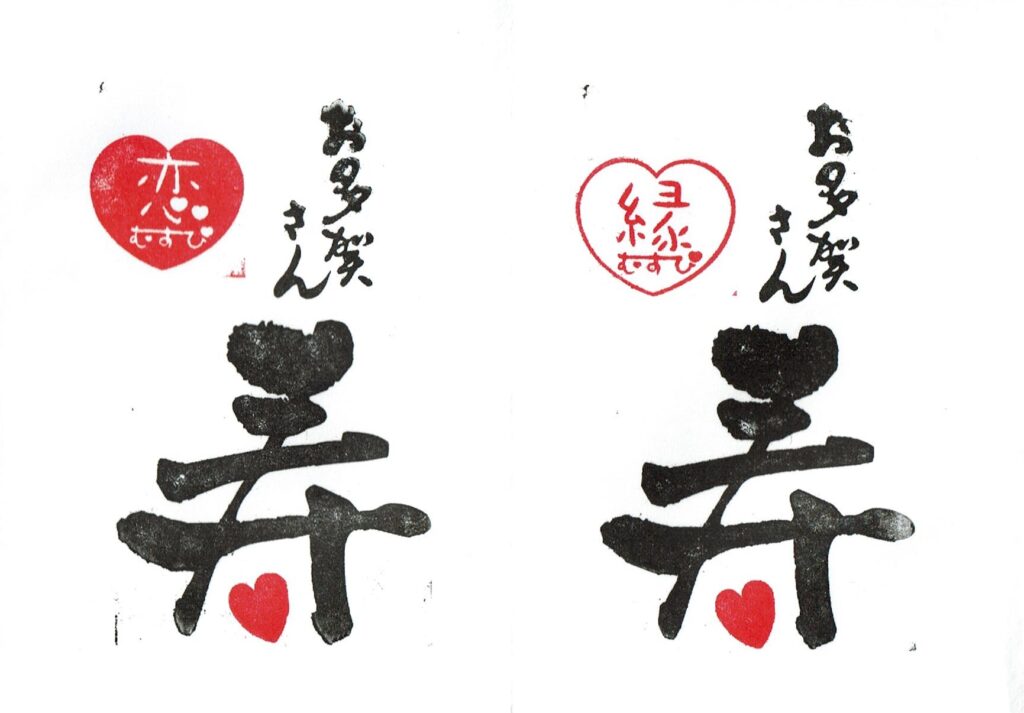 お多賀
さん
恋
むすび
寿
お多賀
さん
縁
むすび
寿